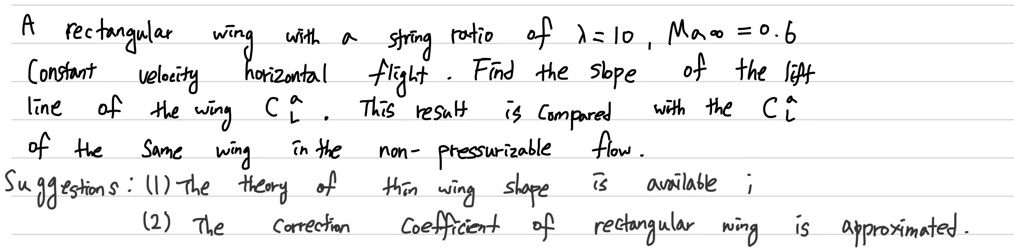 A rectangular wing with a string ratio of λ=10, Ma∞ = 0.6
Constant velocity horizontal flight. Find the slope of the lift
line of the wing C_L^a. This result is compared with the C_L^a
of the same wing in the non-pressurizable flow.
Suggestions: (1) The theory of thin wing shape is available;
(2) The correction coefficient of rectangular wing is approximated.